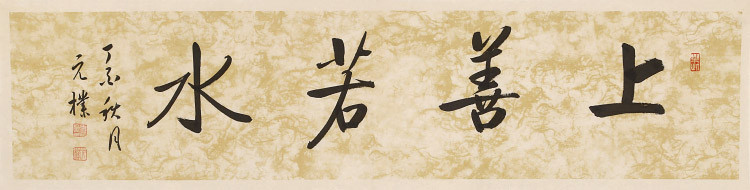 上善若水
丁亥秋月
元樸